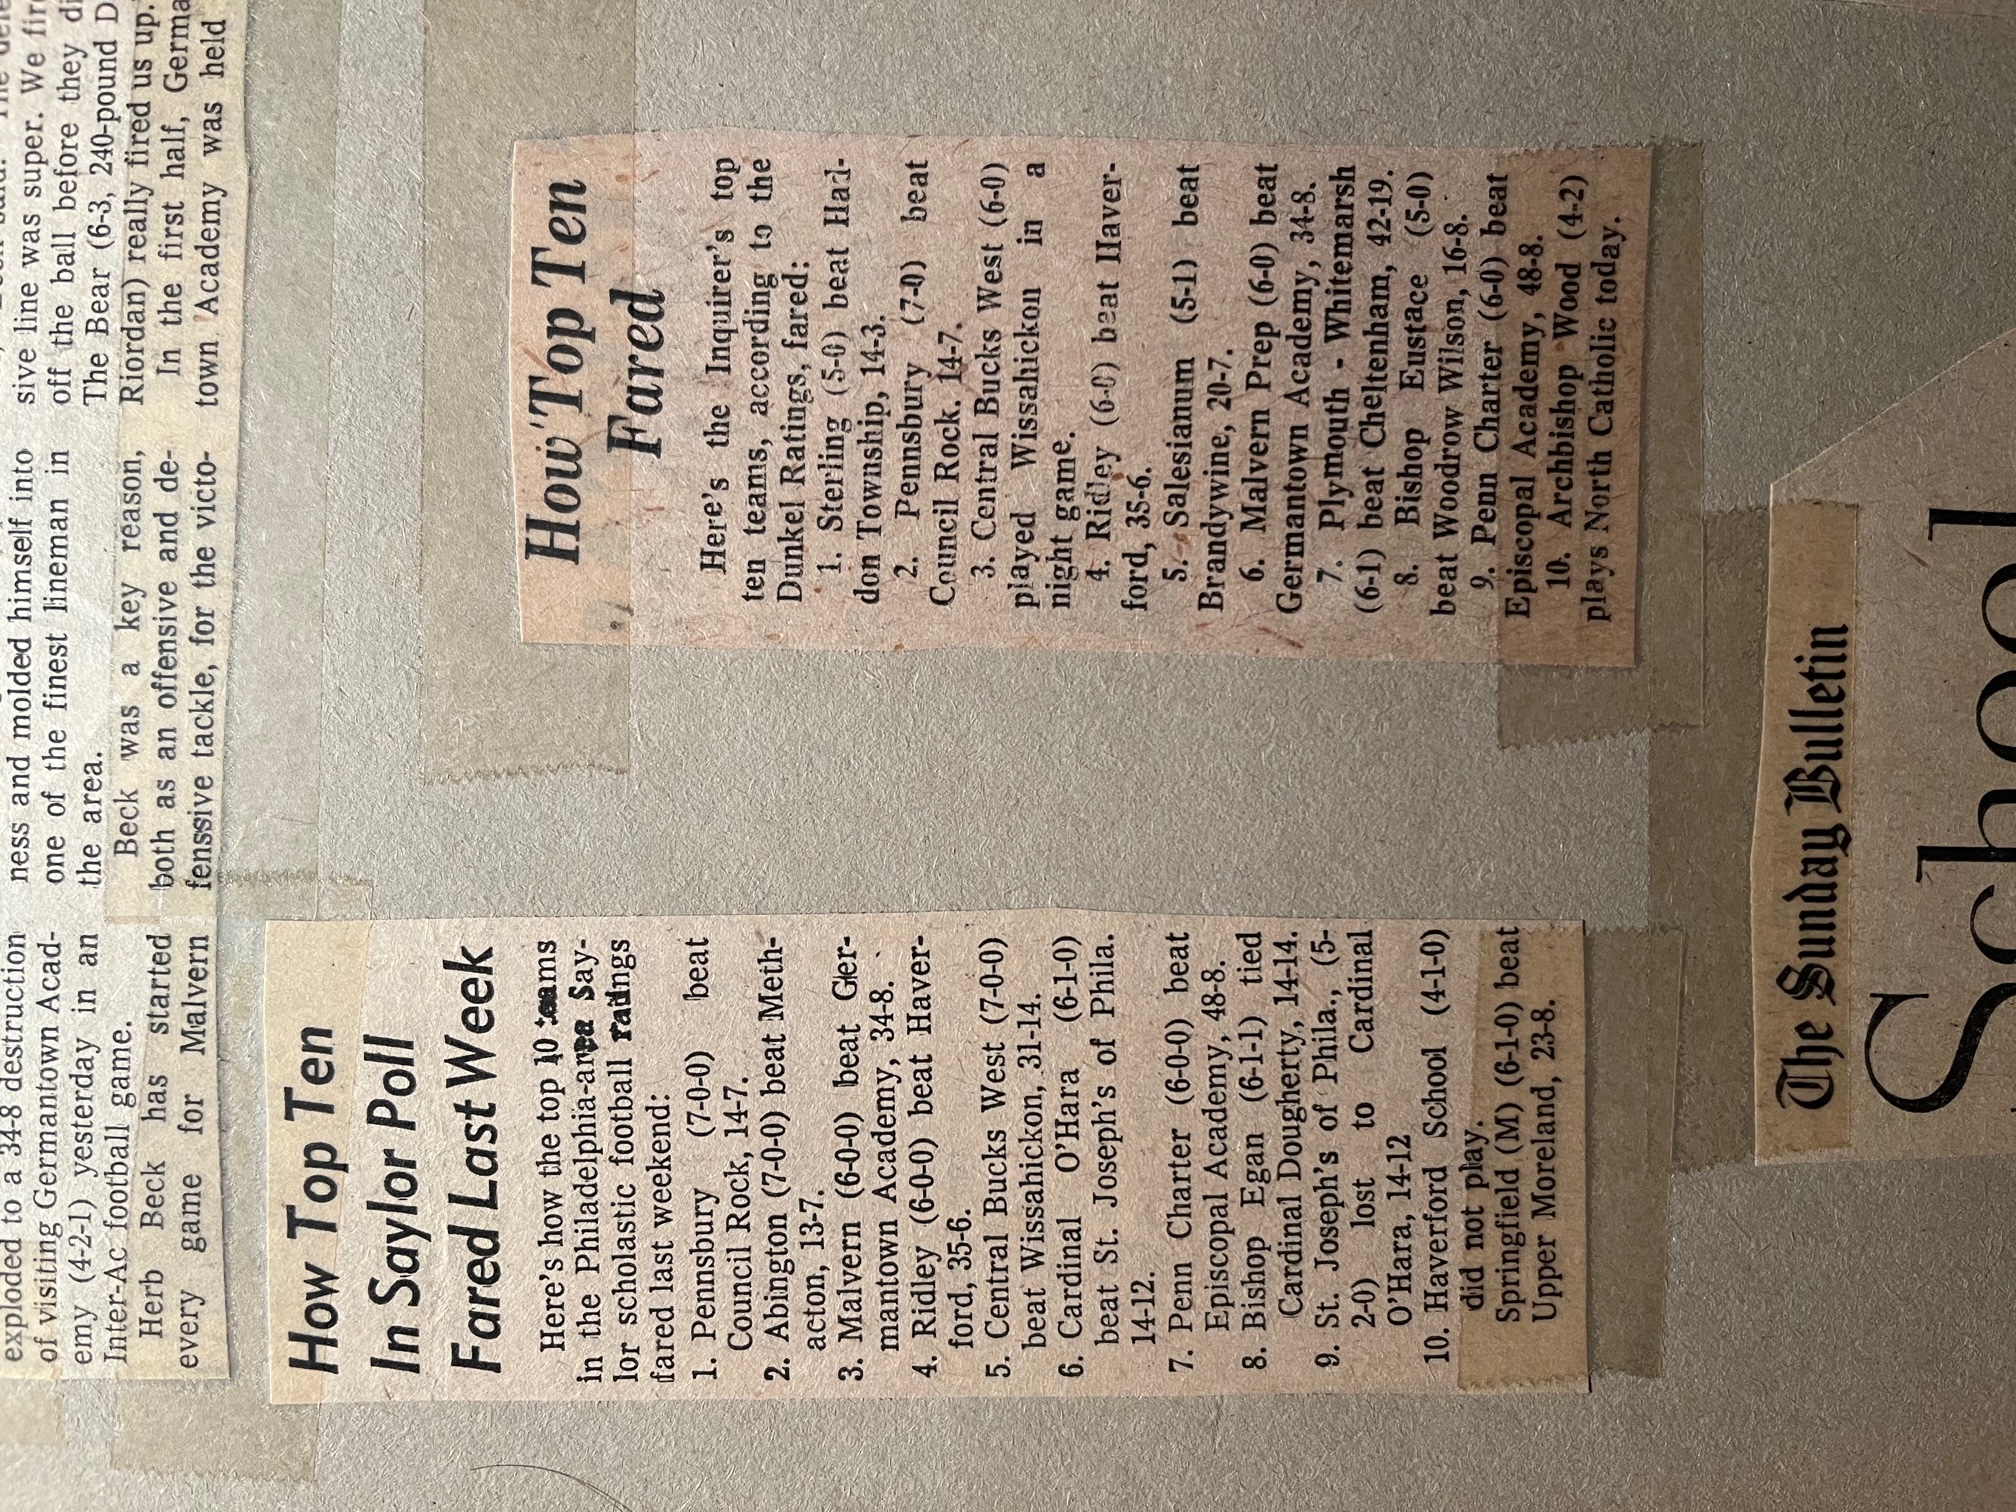 exploded to a 34-8 destruction
of visiting Germantown Acad-
emy (4-2-1) yesterday in an
Inter-Ac football game.
Herb Beck has started
every game for Malvern
ness and molded himself into
one of the finest lineman in
the area.
Beck was a key reason,
both as an offensive and de-
fenssive tackle, for the victo-
sive line was super. We fire
off the ball before they di
The Bear (6-3, 240-pound D
Riordan) really fired us up.
In the first half, Germa
town Academy was held
How Top Ten
In Saylor Poll
Fared Last Week
Here's how the top 10 teams
in the Philadelphia-area Say-
lor scholastic football ratings
fared last weekend:
1. Pennsbury (7-0-0) beat
Council Rock, 14-7.
2. Abington (7-0-0) beat Meth-
acton, 13-7.
3. Malvern (6-0-0) beat Ger-
mantown Academy, 34-8.
4. Ridley (6-0-0) beat Haver-
ford, 35-6.
5. Central Bucks West (7-0-0)
beat Wissahickon, 31-14.
6. Cardinal O'Hara (6-1-0)
beat St. Joseph's of Phila.
14-12.
7. Penn Charter (6-0-0) beat
Episcopal Academy, 48-8.
8. Bishop Egan (6-1-1) tied
Cardinal Dougherty, 14-14.
9. St. Joseph's of Phila., (5-
2-0) lost to Cardinal
O'Hara, 14-12
10. Haverford School (4-1-0)
did not play.
Springfield (M) (6-1-0) beat
Upper Moreland, 23-8.
How Top Ten
Fared
Here's the Inquirer's top
ten teams, according to the
Dunkel Ratings, fared:
1. Sterling (5-0) beat Had-
don Township, 14-3.
2. Pennsbury (7-0) beat
Council Rock. 14-7.
3. Central Bucks West (6-0)
played Wissahickon in a
night game.
4. Ridley (6-0) beat Haver-
ford, 35-6.
5. Salesianum (5-1) beat
Brandywine, 20-7.
6. Malvern Prep (6-0) beat
Germantown Academy, 34-8.
7. Plymouth - Whitemarsh
(6-1) beat Cheltenham, 42-19.
8. Bishop Eustace (5-0)
beat Woodrow Wilson, 16-8.
9. Penn Charter (6-0) beat
Episcopal Academy, 48-8.
10. Archbishop Wood (4-2)
plays North Catholic today.
The Sunday Bulletin
School